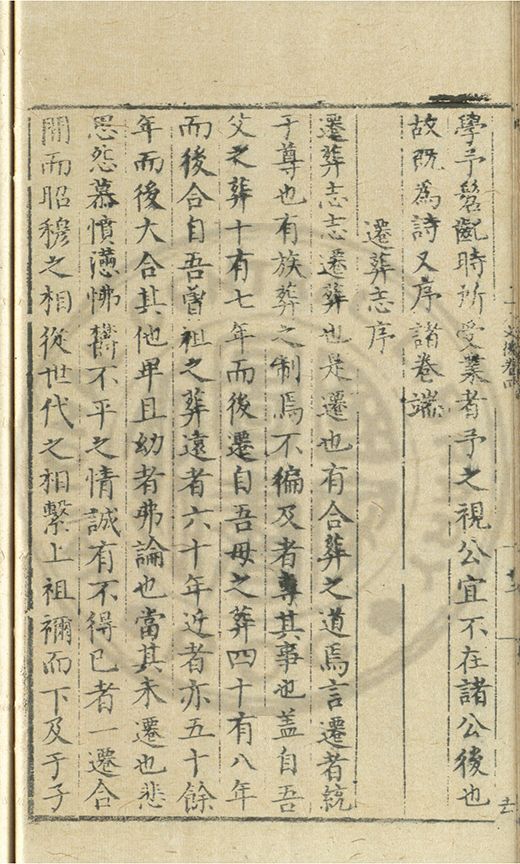 學予髫齓時所受業者予之視公宜不在諸公後也
故既為詩又序諸卷端
遷葬志序
遷葬志志遷葬也是遷也有合葬之道焉言遷者統
于尊也有族葬之制焉不徧及者專其事也盖自吾
父之葬十有七年而後遷自吾母之葬四十有八年
而後合自吾曾祖之葬遠者六十年近者亦五十餘
年而後大合其他卑且幼者弗論也當其未遷也悲
思怨慕憤懣怫欝不平之情誠有不得已者一遷合
間而昭穆之相從世代之相繫上祖禰而下及于子